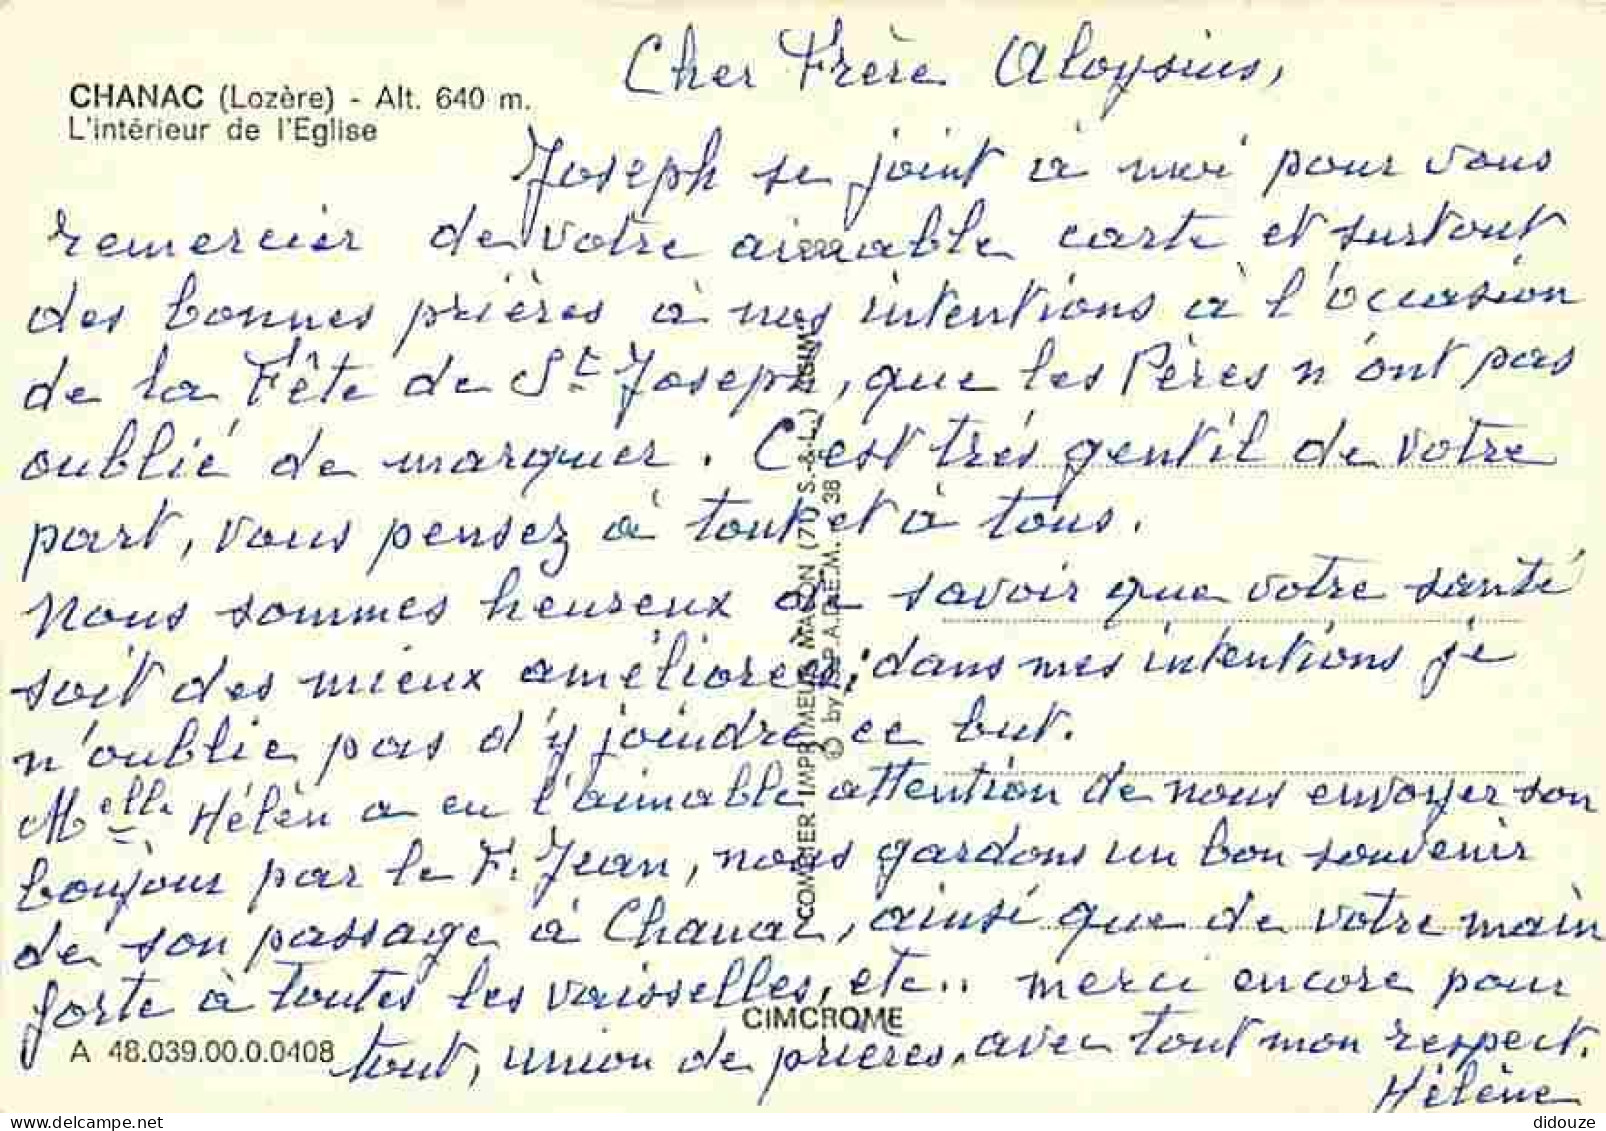 CHANAC (Lozère) - Alt. 640 m.
L'intérieur de l'Eglise
Cher Frère Aloysius,
Joseph se joint à moi pour vous
remercier de votre aimable carte et surtout
des bonnes prières à nos intentions à l'occasion
de la Fête de St Joseph, que les Pères n'ont pas
oublié de marquer. C'est très gentil de votre
part, vous pensez à tout et à tous.
Nous sommes heureux de savoir que votre santé
soit des mieux améliorées; dans mes intentions je
n'oublie pas d'y joindre ce but.
Melle Hélèn a eu l'aimable attention de nous envoyer son
boujour par le F. Jean, nous gardons un bon souvenir
de son passage à Chanac, ainsi que de votre main
forte à toutes les vaisselles, etc.. merci encore pour
tout, union de prières, avec tout mon respect.
Hélène
COMBIER IMPRIMEUR MACON (71) S.-&-L.)
© by S.P.A.D.E.M.
38
CIMCROME
A 48.039.00.0.0408
didouze